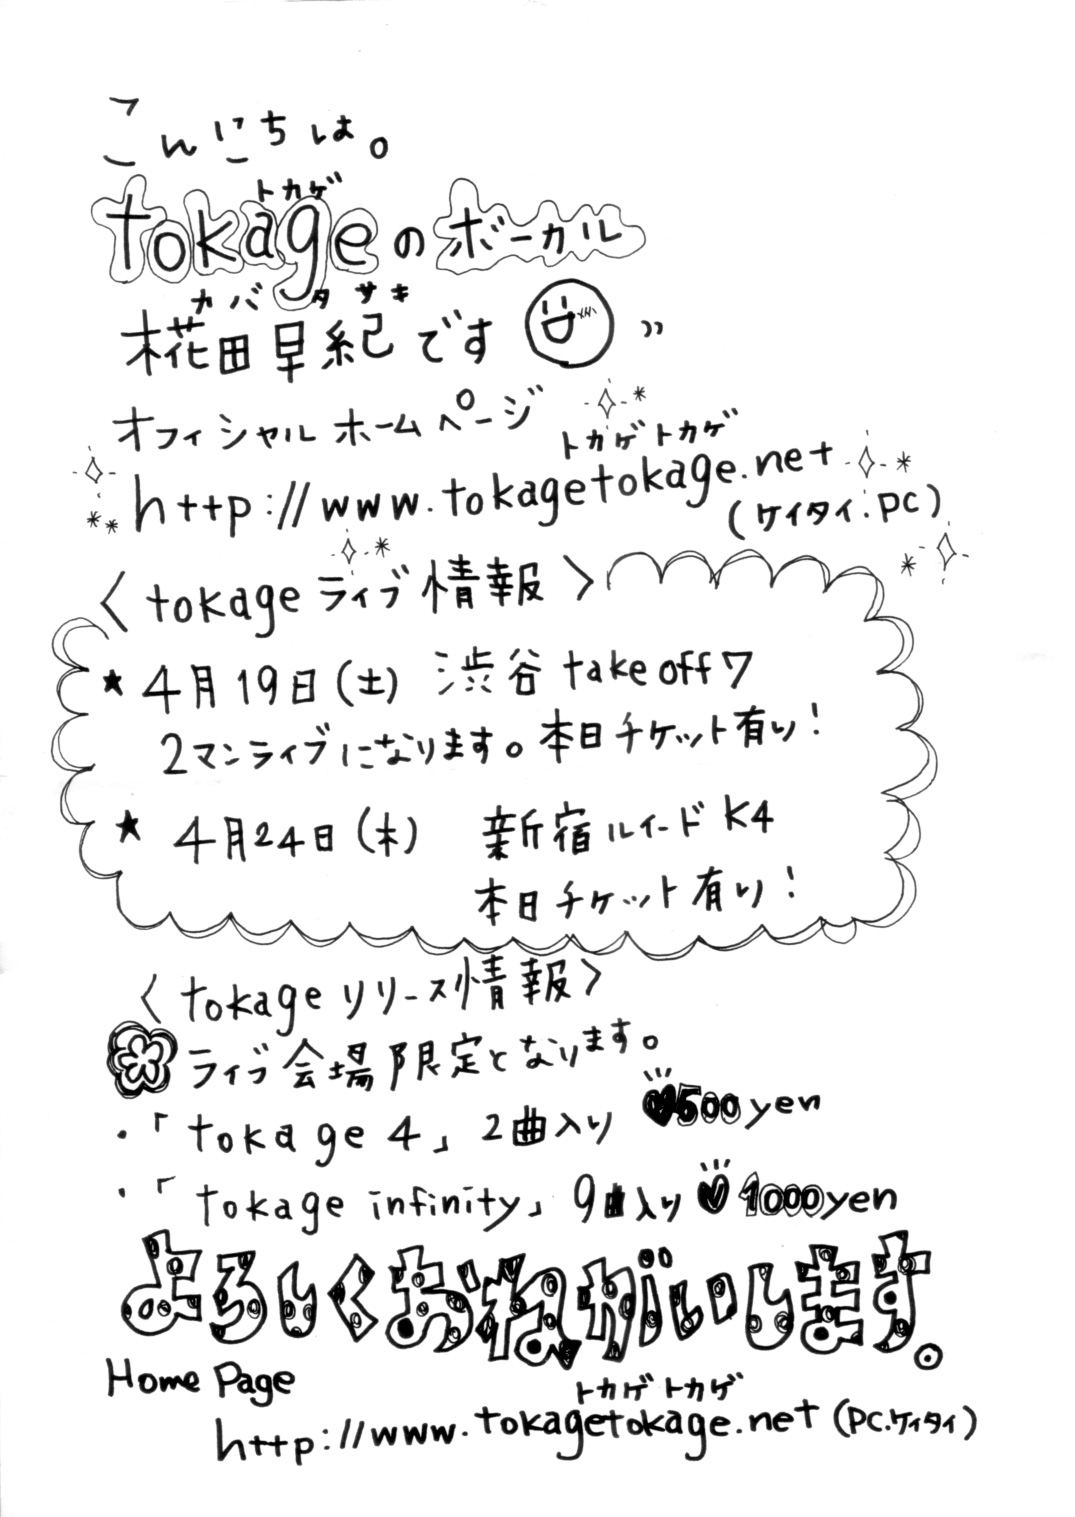 こんにちは。
トカゲ
tokageのボーカル
カバタサキ
椛田早紀です
オフィシャルホームページ
トカゲトカゲ
http://www.tokagetokage.net
(ケイタイ.PC)
〈tokageライブ情報〉
★4月19日(土) 渋谷 take off 7
2マンライブになります。本日チケット有り!
★4月24日(木) 新宿ルイードK4
本日チケット有り!
〈tokageリリース情報〉
ライブ会場限定となります。
・「tokage4」2曲入り ♥500yen
・「tokage infinity」9曲入り ♥1000yen
よろしくおねがいします。
Home Page
トカゲトカゲ
http://www.tokagetokage.net (PC.ケイタイ)